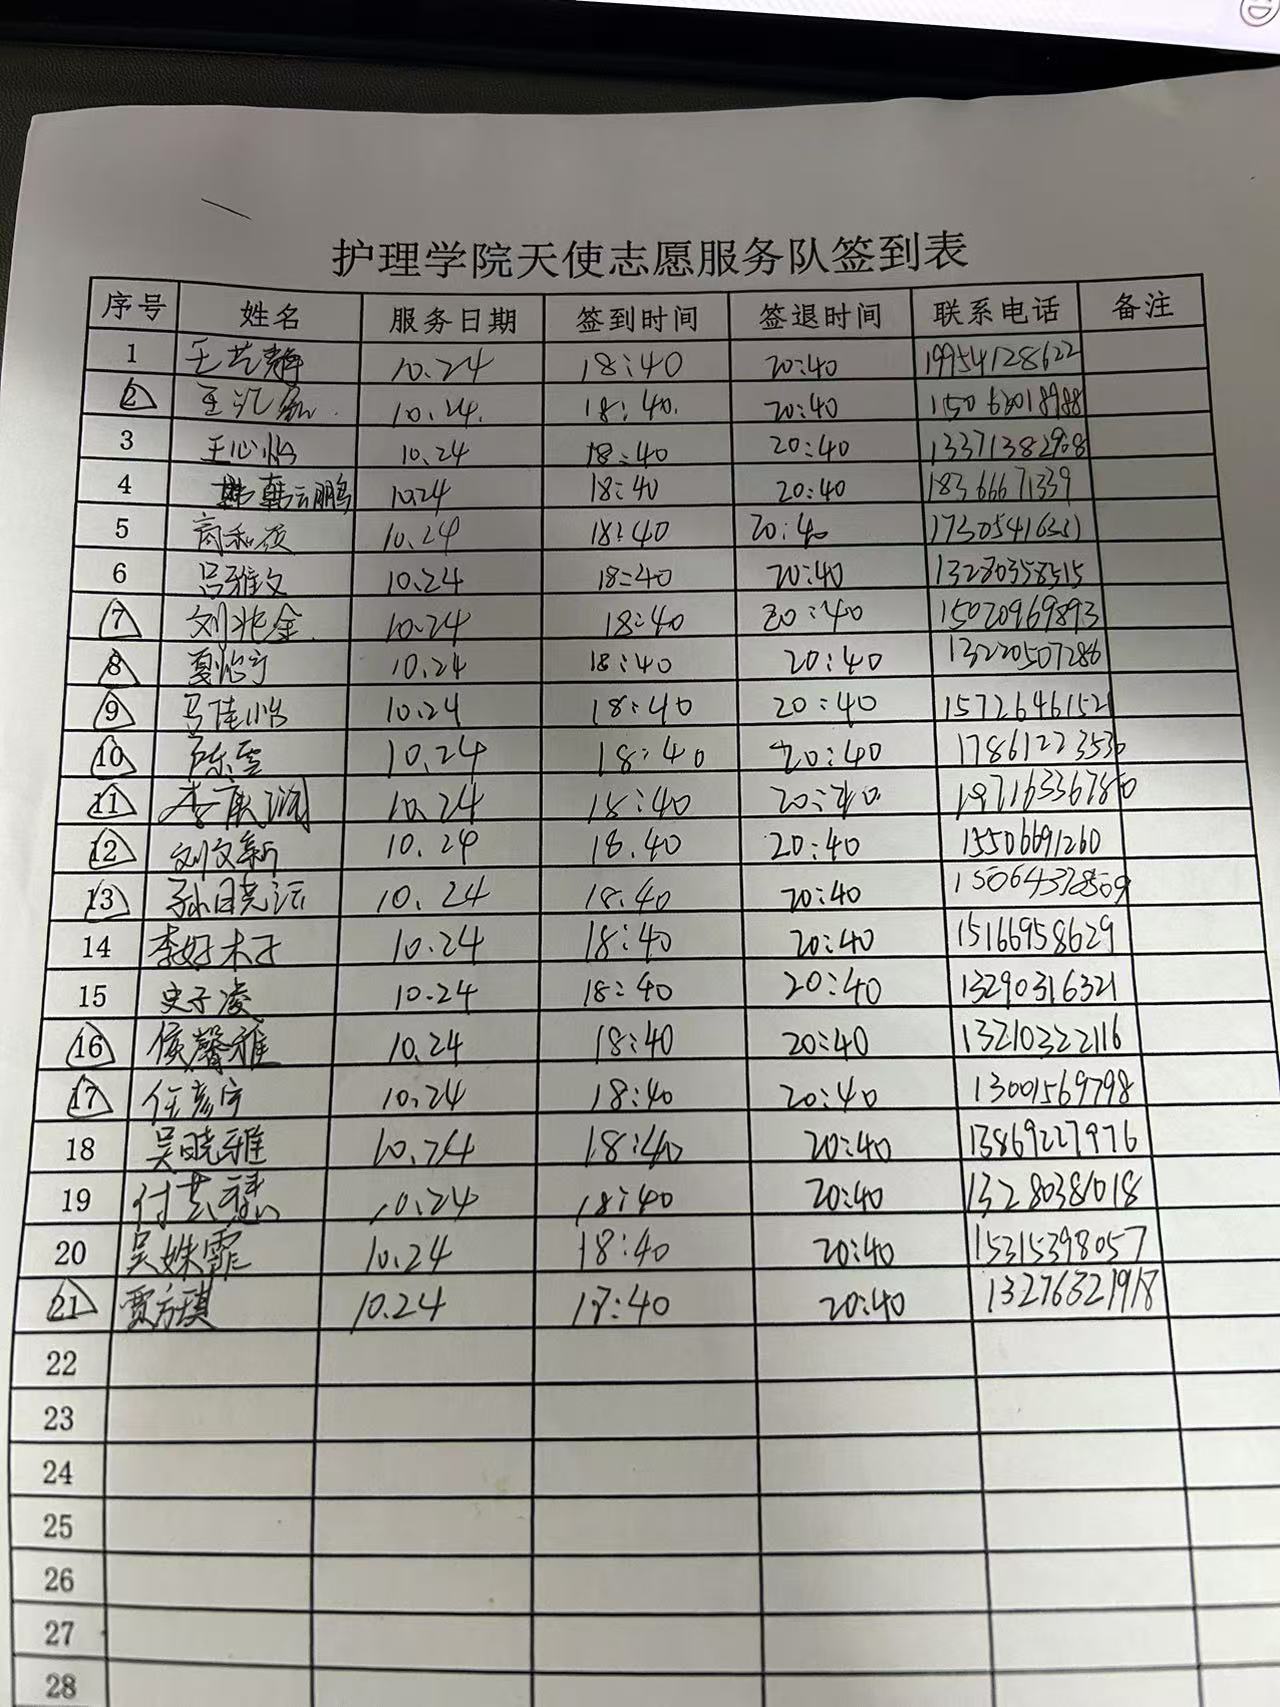 护理学院天使志愿服务队签到表
序号 姓名 服务日期 签到时间 签退时间 联系电话 备注
1 王艺静 10.24 18:40 20:40 19954128622
2 10.24. 18:40. 20:40 15063018988
3 王心怡 10.24 18:40 20:40 13371382908
4 韩云鹏 10.24 18:40 20:40 18366671339
5 商和俊 10.24 18:40 20:40
6 吕雅文 10.24 18:40 20:40 13280358515
7 刘兆金 10.24 18:40 20:40 15020969893
8 夏怡宁 10.24 18:40 20:40 13220507286
9 马佳怡 10.24 18:40 20:40 15726461521
10 陈雪 10.24 18:40 20:40 17861223530
11 李康润 10.24 18:40 20:40
12 刘文新 10.24 18.40 20:40 15506691260
13 孙晓运 10.24 18:40 20:40 15064378509
14 李好木子 10.24 18:40 20:40 15166958629
15 史子凌 10.24 18:40 20:40 13290316321
16 侯馨雅 10.24 18:40 20:40 13210322116
17 任彦宇 10.24 18:40 20:40 13001569798
18 吴晓雅 10.24 18:40 20:40 13869227976
19 付艺穗 10.24 18:40 20:40 13280381018
20 吴姝霏 10.24 18:40 20:40 15315398057
21 贾方琪 10.24 18:40 20:40 13276321918
22
23
24
25
26
27
28